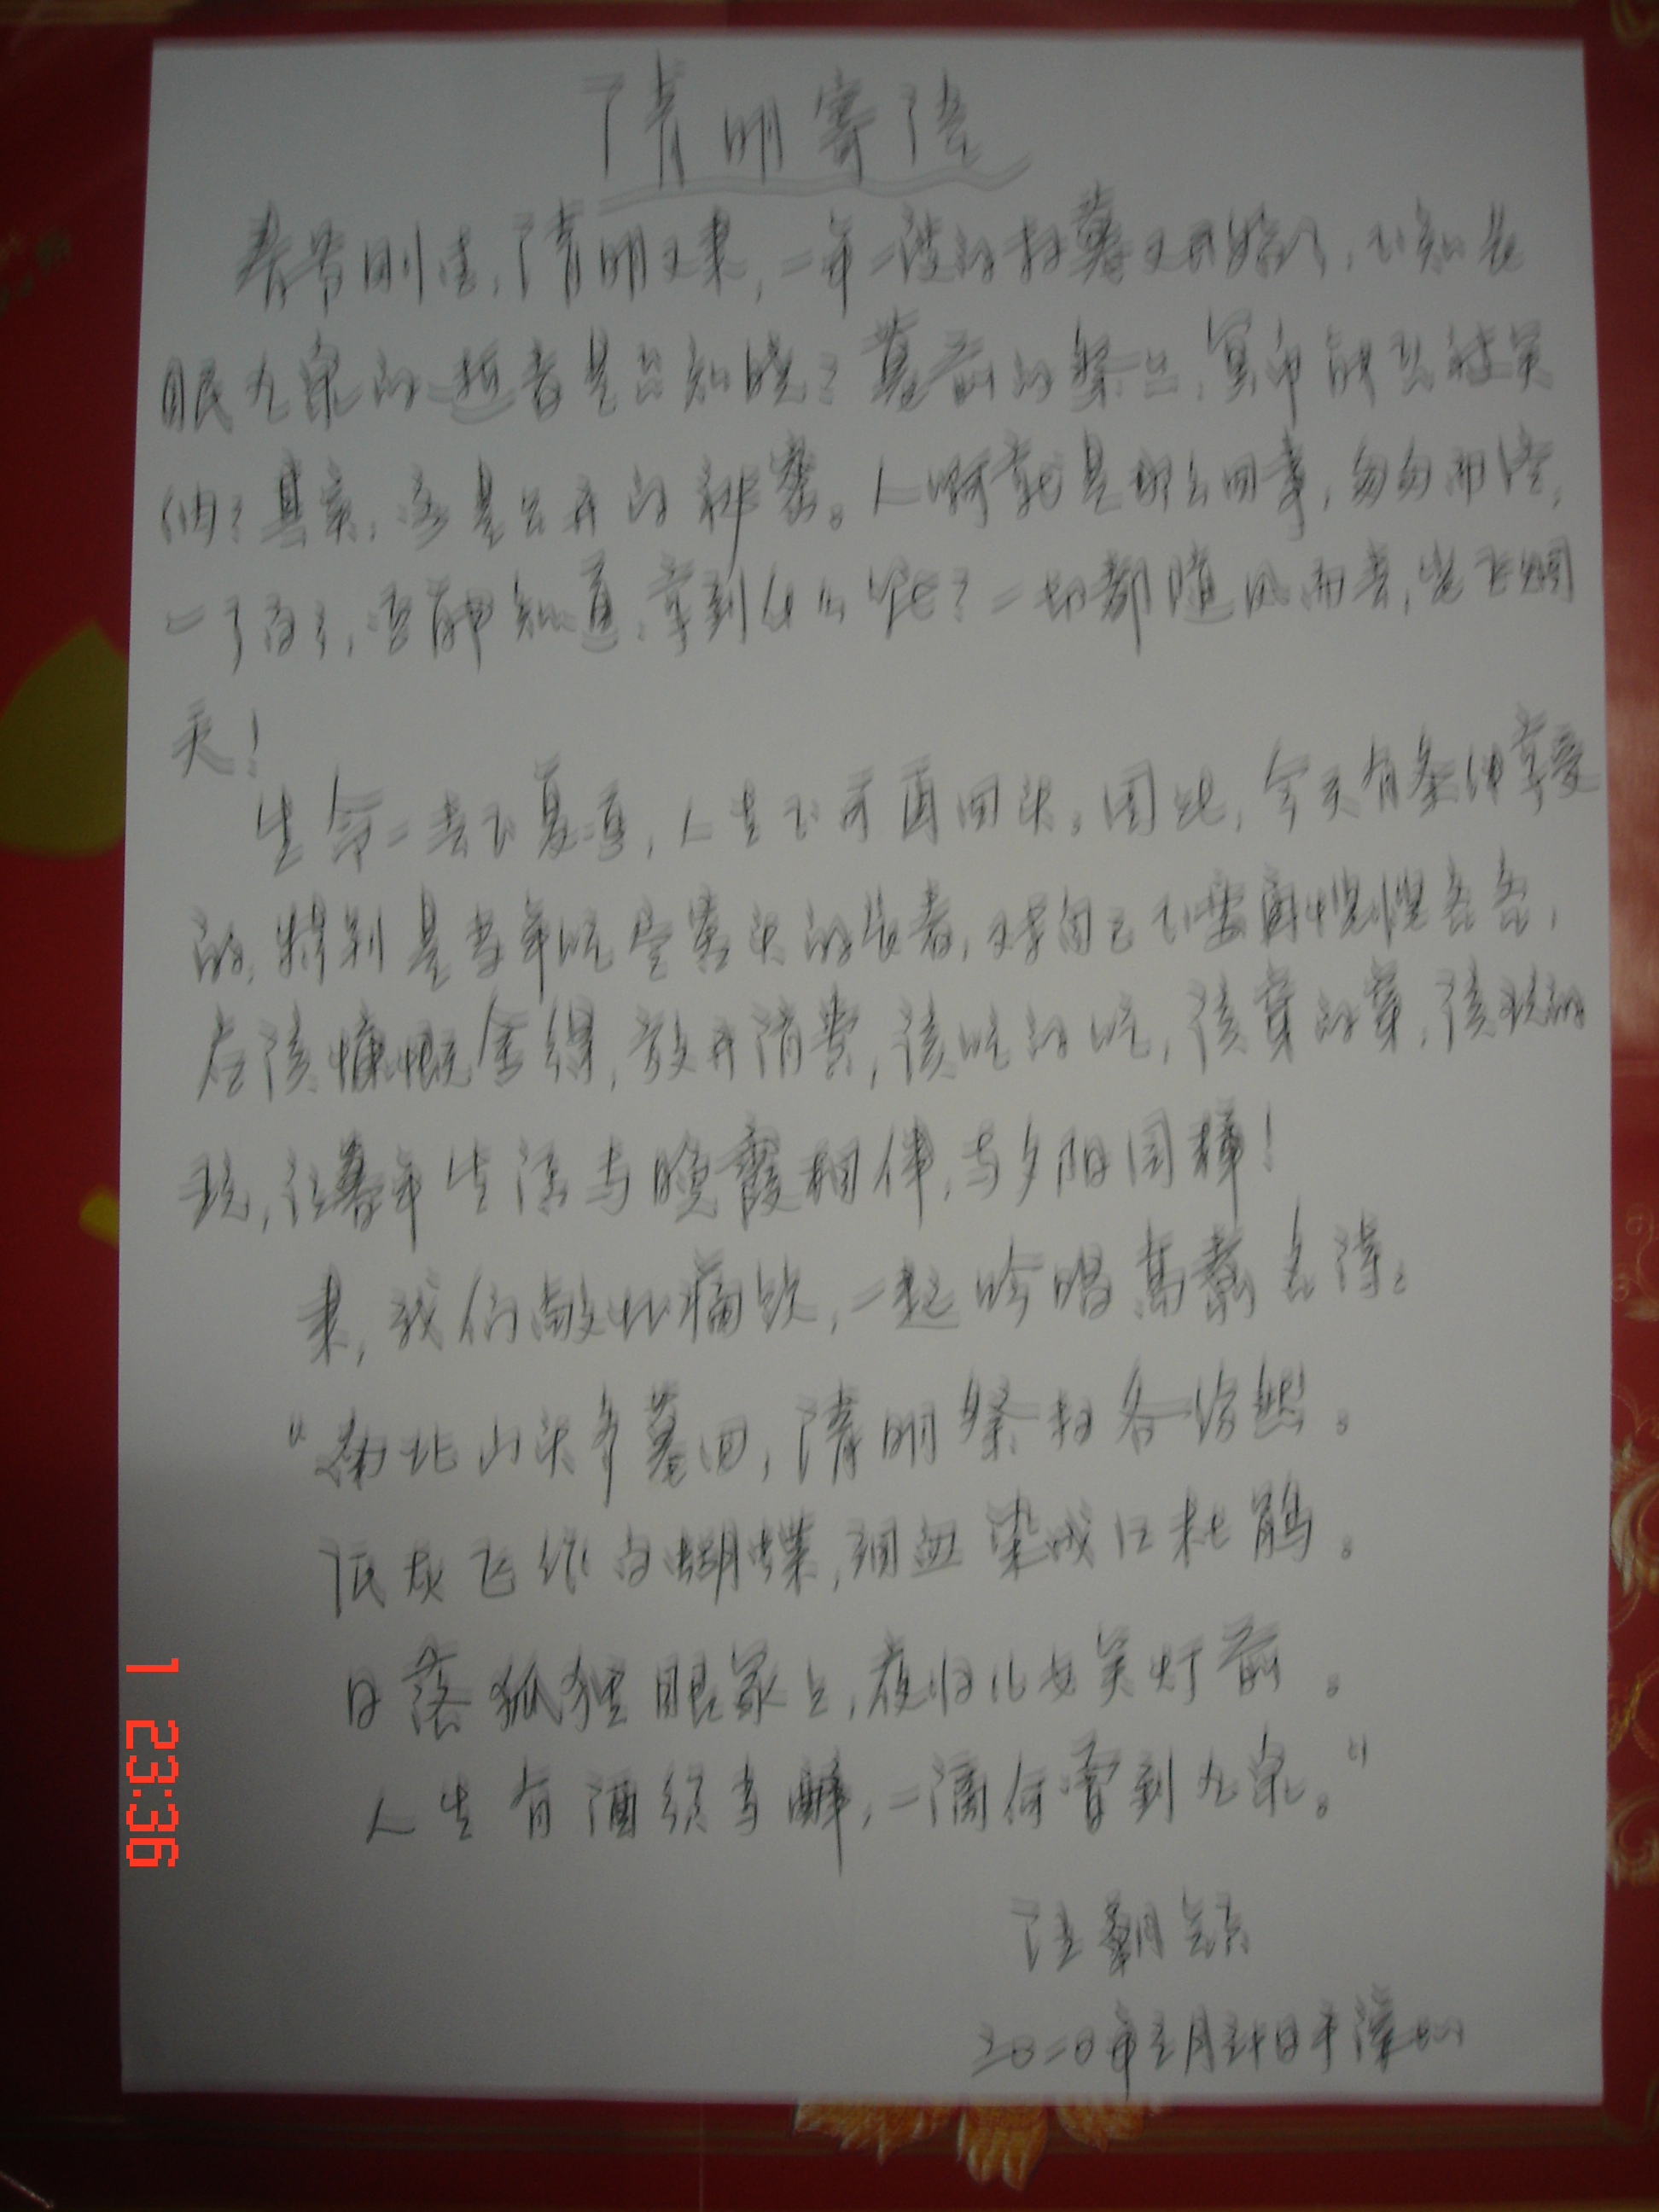 清明寄语
春节刚去,清明又来,一年一度的扫墓又开始了,不知长
眠九泉的逝者是否知晓?墓前的祭品、冥币能否被笑
纳?其实,这是公开的秘密。人啊就是那么回事,匆匆而
一了百了,否能知道、拿到什么呢?一切都随风而去,
灭!
生命一去不复返,人生不可再回头。因此,今天有条件享受
的,特别是当年吃尽苦头的长者,对自己不要再悭悭吝吝,
应该慷慨舍得,放开消费,该吃的吃,该穿的穿,该玩的
玩,让暮年生活与晚霞相伴,与夕阳同辉!
来,我们开怀痛饮,一起吟唱高翥名诗:
“南北山头多墓田,清明祭扫各纷然。
纸灰飞作白蝴蝶,泪血染成红杜鹃。
日落狐狸眠冢上,夜归儿女笑灯前。
人生有酒须当醉,一滴何曾到九泉。”
汪朝
二0一0年三月三十日于
1 23:36